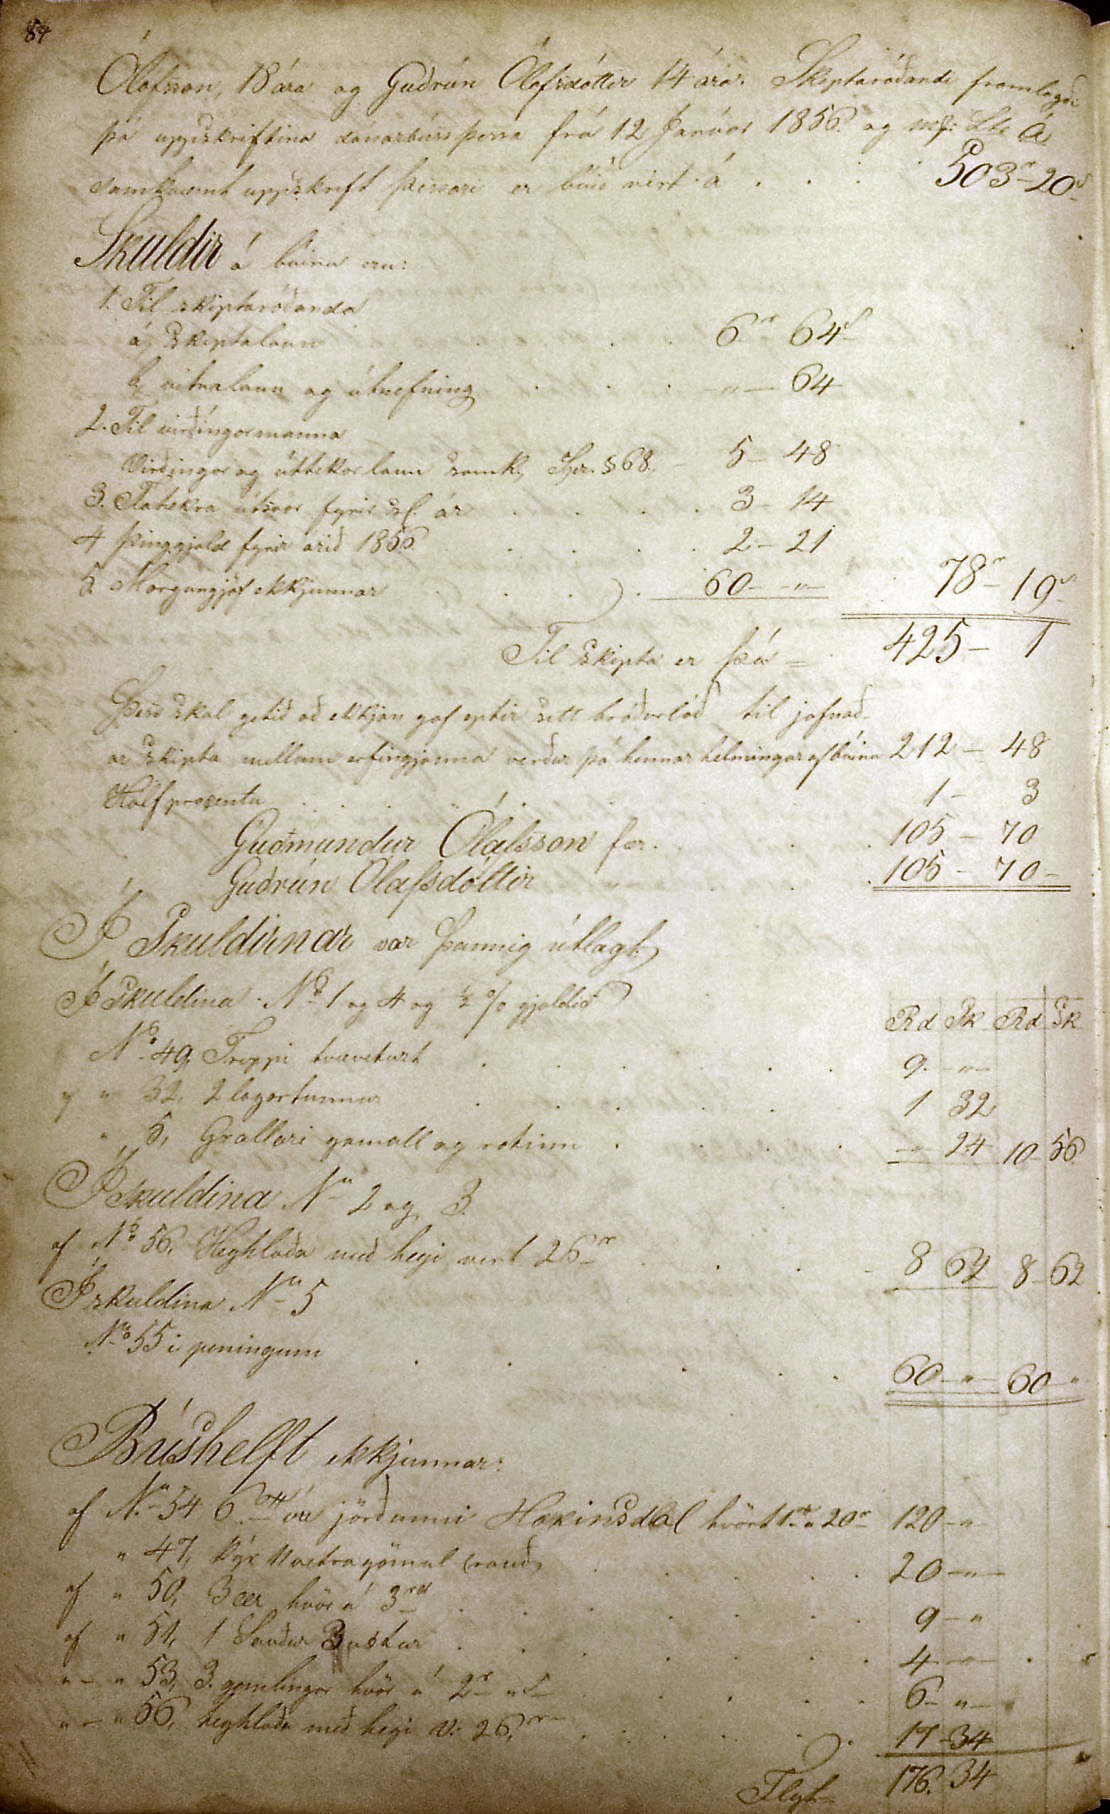 84
Ólafsson, 18 ára og Guðrún Ólafsdóttir 14 ára. Skiptaráðandi framlagði
þá uppskriftina dánarbús þessa frá 12 Janúar 1856. og Lit. A
samkvæmt uppskrift þessari er búið virt á . . . 503 rd 20 s
Skuldir á búinu eru:
1. Til skiptaráðanda
a, Skiptalaun . . . 6 rd 64 s
b, vitnalaun og útnefning . . . " — 64
2. Til virðíngarmanna
Virðingar og úttektar laun samk. Spr. § 68. – 5 – 48
3. Fátækra útsvar fyrir sl. ár . . . 3 – 14
4 þinggjald fyrir árið 1856 . . . 2 – 21
5 Morgungjöf ekkjunnar . . . 60 – " — 78 rd – 19 s
Til skipta er þá = 425 – 1
Þess skal getið að ekkjan gaf eptir sett bróðurlóð til jafnað-
ar skipta millum erfingjanna verður þá hennar helmingur af búinu 212 – 48
Hálf prosenta . . . 1 – 3
Guðmundur Ólafsson fær . . . 105 – 70
Guðrún Ólafsdóttir " . . . 105 – 70 –
Í Skuldirnar var þannig útlagt
Í Skuldina No 1 og 4 og ½ % gjaldið
Rd Sk Rd Sk
No 49, Trippi tvæveturt . . . 9 – "
" 32, 2 lagartunnur . . . 1 32
" 5, Grallari gamall og rotinn . . . " 24 10 – 56
Í skuldina No 2 og 3.
af No 56, Heyhlaða með heyi vert 26 rd . . . 8 62 8 – 62
Í skuldina No 5
No 55 i peningum . . . 60 – " – 60 "
Búshelft ekkjunnar:
af No 54 6. úr jörðunni Hokinsdal hvört á 20 rd 120 – "
" 47, kýr gömul . . . 20 – " –
af " 50, 3 ær hvör á 3 rd . . . 9 – "
af " 51, 1 Sauður . . . 4 – " –
" – " 53, 3. gemlingar hvör á 2 rd " s . . . 6 – " –
" – " 56, heyhlaða með heyi v: 26 rd . . . 17 – 34
Flyt 176. 34